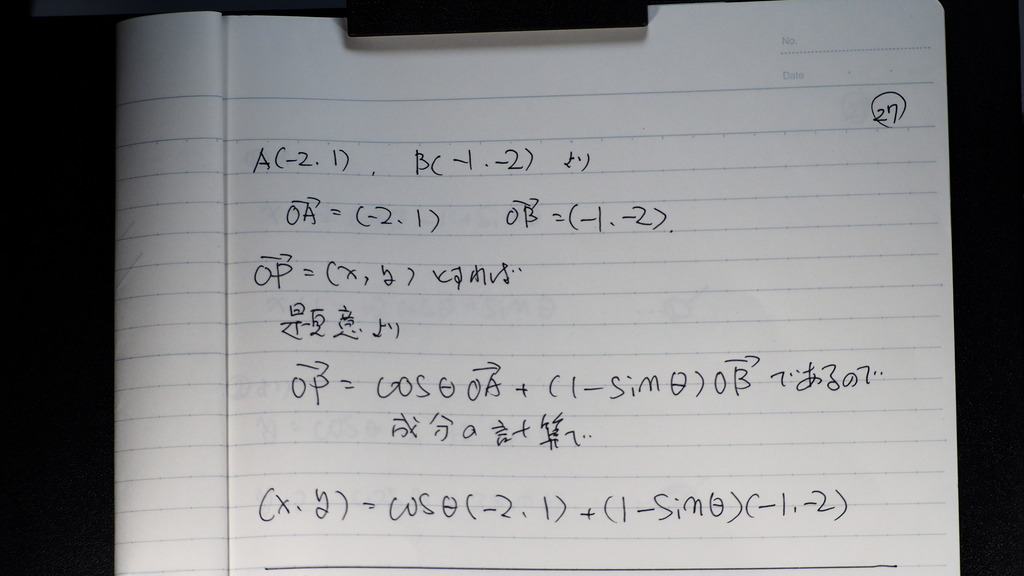 No.
Date
27
A(-2, 1), B(-1, -2) より
$\overrightarrow{OA}$ = (-2, 1) $\overrightarrow{OB}$ = (-1, -2).
$\overrightarrow{OP}$ = (x, y) とすれば
題意より
$\overrightarrow{OP}$ = cosθ $\overrightarrow{OA}$ + (1-sinθ) $\overrightarrow{OB}$ であるので
成分の計算で
(x, y) = cosθ(-2, 1) + (1-sinθ)(-1, -2)